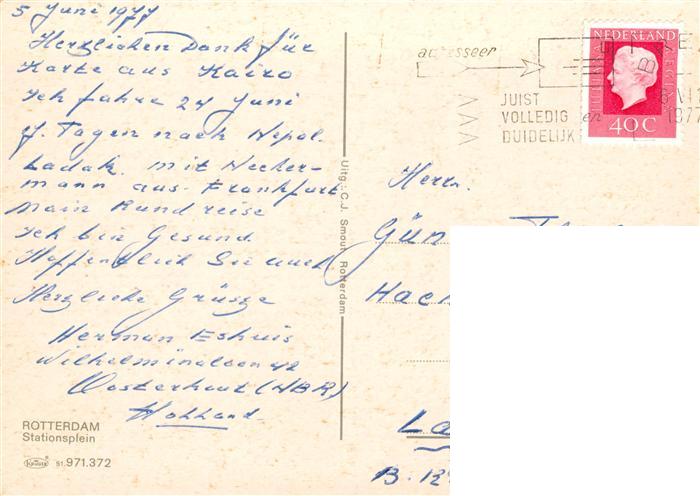 5 Juni 1977
Herzlichen Dank für
Karte aus Kairo
Ich fahre 24 Juni
Tagen nach Nepal
Ladak. mit Necker-
mann aus Frankfurt
Main Rundreise
Ich bin Gesund.
Hoffentlich Sie auch.
Herzliche Grüsze
Herman Eshuis
Wilhelminalaan 42
Oosterhout (NBR)
Holland.
ROTTERDAM
Stationsplein
KRÜGER
51.971.372
Uitg.: C.J. Smout, Rotterdam
adresseer
JUIST
VOLLEDIG en
DUIDELIJK
1977
NEDERLAND
JULIANA REGINA
40C
Herrn.
Gün
Hach
La